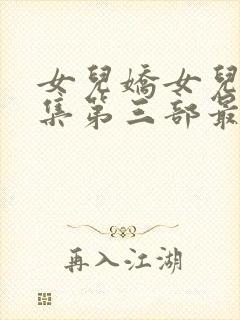 女兒嬌女兒
集第三部最
再入江湖